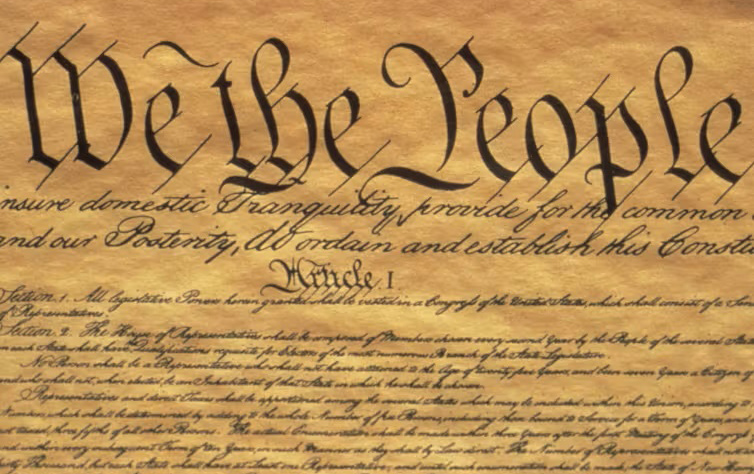 We the People
insure domestic Tranquility, provide for the common
and our Posterity, do ordain and establish this Constit
Article. I.
Section. 1. All legislative Powers herein granted shall be vested in a Congress of the United States, which shall consist of a Sen
of Representatives.
Section. 2. The House of Representatives shall be composed of Members chosen every second Year by the People of the several Stat
in each State shall have Qualifications requisite for Electors of the most numerous Branch of the State Legislature.
No Person shall be a Representative who shall not have attained to the Age of twenty five Years, and been seven Years a Citizen of
and who shall not, when elected, be an Inhabitant of that State in which he shall be chosen.
Representatives and direct Taxes shall be apportioned among the several States which may be included within this Union, according to
Numbers, which shall be determined by adding to the whole Number of free Persons, including those bound to Service for a Term of Years, and
not taxed, three fifths of all other Persons. The actual Enumeration shall be made within three Years after the first Meeting of the Congress
and within every subsequent Term of ten Years, in such Manner as they shall by Law direct. The Number of Representatives shall not
thirty Thousand, but each State shall have at Least one Representative; and until such enumeration shall be made, the State of